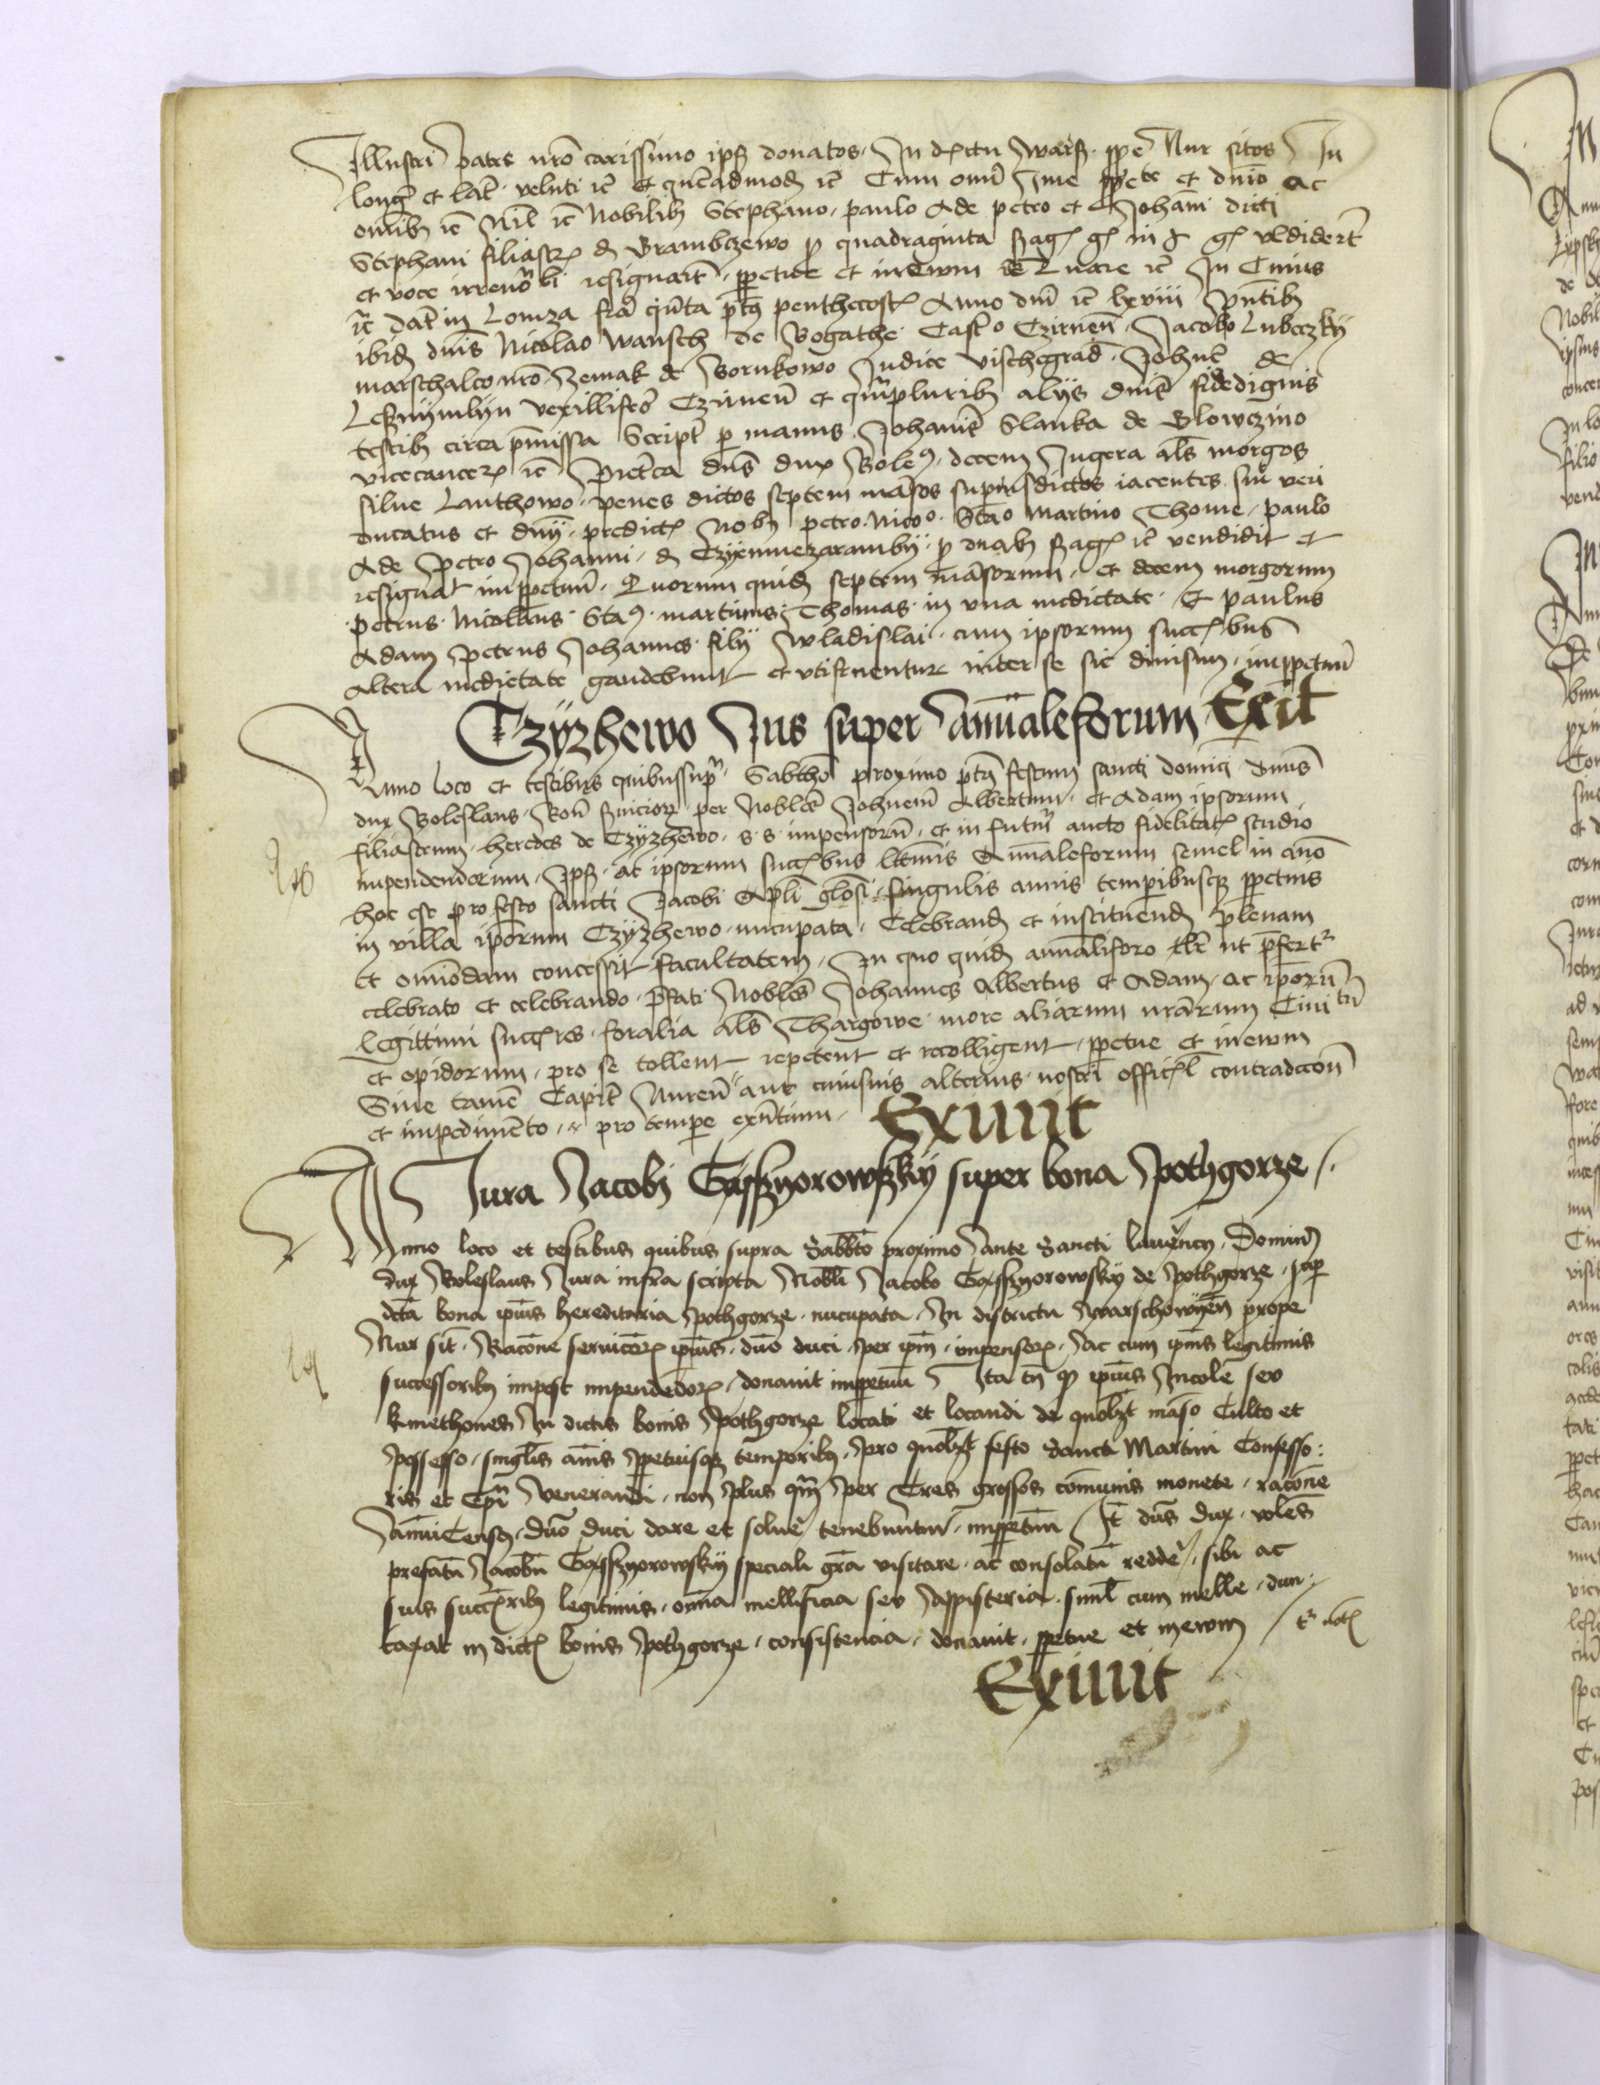 Illustri patre nro carissimo ipis donatos In dictu Warss ppe Nur sitos In
long et lat veluti ic et quedadmod ic Cum omi Jure ppete et dnio ac
omibus ic Nil ic Nobilib Stephano paulo Ade petro et Johani dicti
Stephani filiastr de Brambczewo p quadraginta sag gr in gr vendidert
et voce irrevobli resignart ppetue et in ewm ic In Cuius
ic dat in Lomza fra quita pth penthecost Anno dni ic lxviii pntib
ibid dnis Nicolao Wansch de Bogathe Casto Czirnen Jacobo Lubeczky
marschalco nro Zemak de Bornkowo Judice vischegrad Johne de
vexillifero Czirnen et qmpluribus alys dnis fidedignis
testib circa pmissa Script p manus Johanis Slanka de Glowczino
vicecancer ic Preterea dns dux Boles decem Jugera als morgos
silve Lanthowo penes dictos septem mansos supmsdictos iacentes sui veri
ducatus et dny predict Nob petro Nico Sta Martino Thome paulo
Ade Petro Johanni de p duab sag ic vendidit et
resignat imppetuu Quorum quid septem mansorum et decem morgorum
petrus Nicolaus Sta martinus Thomas in vna medietate Et paulus
Adam Petrus Johannes fily Wladislai cum ipsorum succ bus
altera medietate gaudebunt et vtifruentur inter se sic divisim imppetuu
Czyzhewo Jus super annaleforum Exit
Anno loco et testibus quibussupra Sabtho proximo pth festum sancti domici dnus
dux Boleslaus Bon per Nobles Johnem Albertum et Adam ipsorum
filiastrum heredes de Czyzhewo s s impensoru et in futur aucto fidelitat studio
impendendorum Ips ac ipsorum succbus ltimis Annaleforum semel in ano
hoc est pro festo sancti Jacobi Apli glosi singulis annis temporibusq ppetuis
in villa ipsorum Czyzhewo nucupata Celebrand et instituend plenam
Et omodam concessit facultatem In quo quid annaliforo ut pfert
celebrato et celebrando pfati Nobles Johannes Albertus et Adam ac ipsoru
Legittimi succres foralia als Thargowe more aliarum nrarum Civitu
et opidorum pro se tollent repetent et recolligent ppetue et in ewm
Sine tame Capit Nuren aut cuiusvis alterius nostri official contradccon
et impedimento pro tempe exntium Exiuit
Jura Jacobi Gasszyorowsky super bona Pothgorze
Anno loco et testibus quibus supra Sabbto proximo Ante Sancti laurency Dominus
dux Boleslaus Jura infra scripta Nobli Jacobo Gasszyorowsky de Pothgorze sup
dcta bona ipius hereditaria Pothgorze nucupata In districtu Warschowien prope
Nur sit Racone servicior ipius duo duci per ipm impensor Ac cum ipius legitimis
successoribus impost impendedor donavit imppetuu Ita tn qd ipius Incole seu
kmethones In dictis bonis Pothgorze locati et locandi de quolzt manso Culto et
possesso singlis anis ppetuisq temporib pro quolzt festo Sancti Martini Confesso
ris et Epi venerandi non plus qm per Tres grossos comunis monete racone
Annui Census duo duci dare et solue tenebuntur imppetuu It dns dux voles
prefatu Jacobu Gasszyorowsky speciali gra visitare ac consolatu redde sibi ac
suis succerib legitimis oma mellificia seu Appisteria siml cum melle dun
taxat in dict bonis Pothgorze consistencia donavit ppetue et in ewm
Exiuit